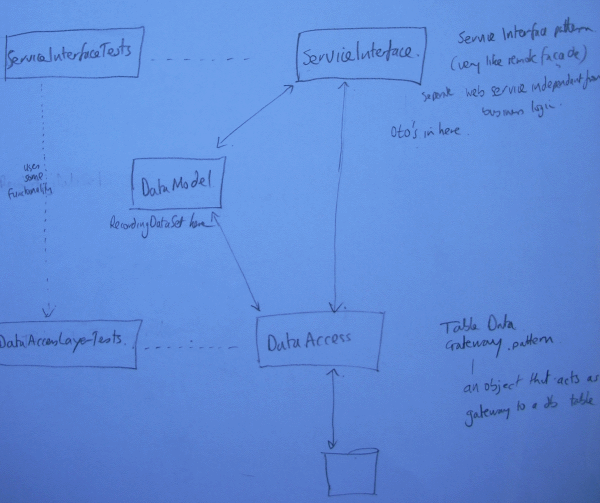 ServiceInterfaceTests
ServiceInterface.
Service Interface pattern
(very like remote facade)
seperate web service independent from
business logic.
Dto's in here.
uses
some
functionality
DataModel
RecordingDataSet here
DataAccessLayerTests.
DataAccess
Table Data
Gateway pattern
an object that acts as
gateway to a db table